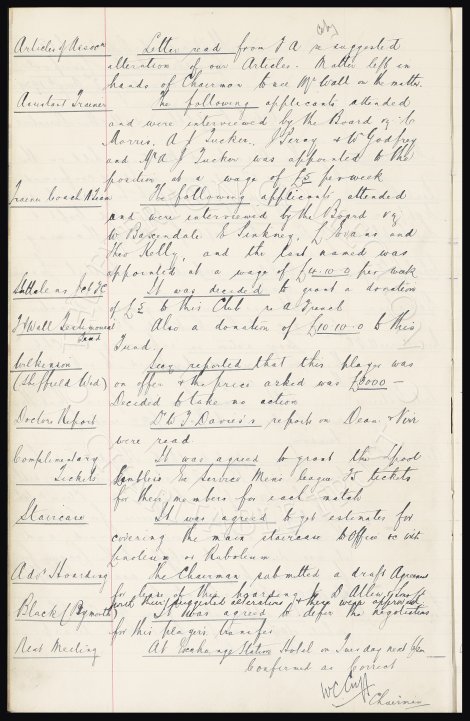 Articles of Assocn Letter read from F A re suggested
alteration of our Articles. Matter left in
hands of Chairman to see Mr Wall on the matter.
Assistant Trainer The following applicants attended
and were interviewed by the Board viz W
Morris, A J Tucker, J Percy & W Godfrey
and Mr A J Tucker was appointed to the
position at a wage of £5 per week
Trainer Coach A Team The following applicants attended
and were interviewed by the Board viz
W Baxendale E Pinkney, L Evans and
Theo Kelly, and the last named was
appointed at a wage of £4-10-0 per week
It was decided to grant a donation
of £5 to this Club re A French
F Wall Testimonial Also a donation of £10-10-0 to this
Fund Fund.
Wilkinson Secy reported that this player was
(Sheffield Wed) on offer & the price asked was £3000 —
Decided to take no action
Doctors Report Dr Davies's reports on Dean &
were read.
Complimentary It was agreed to grant the L'pool
Tickets Ex Service Men's League, 75 tickets
for their members for each match
Staircase It was agreed to get estimates for
covering the main staircase to Office &c with
Linoleum or Rubolium.
Advt Hoarding The Chairman submitted a draft Agreement
for lease of this hoarding to D Allen &
with their suggested alterations & these were approved
Black (Plymouth) It was agreed to defer the negotiations
for this players transfer
Next Meeting At Exchange Station Hotel on Tuesday next
Confirmed as Correct
W C Cuff
Chairman